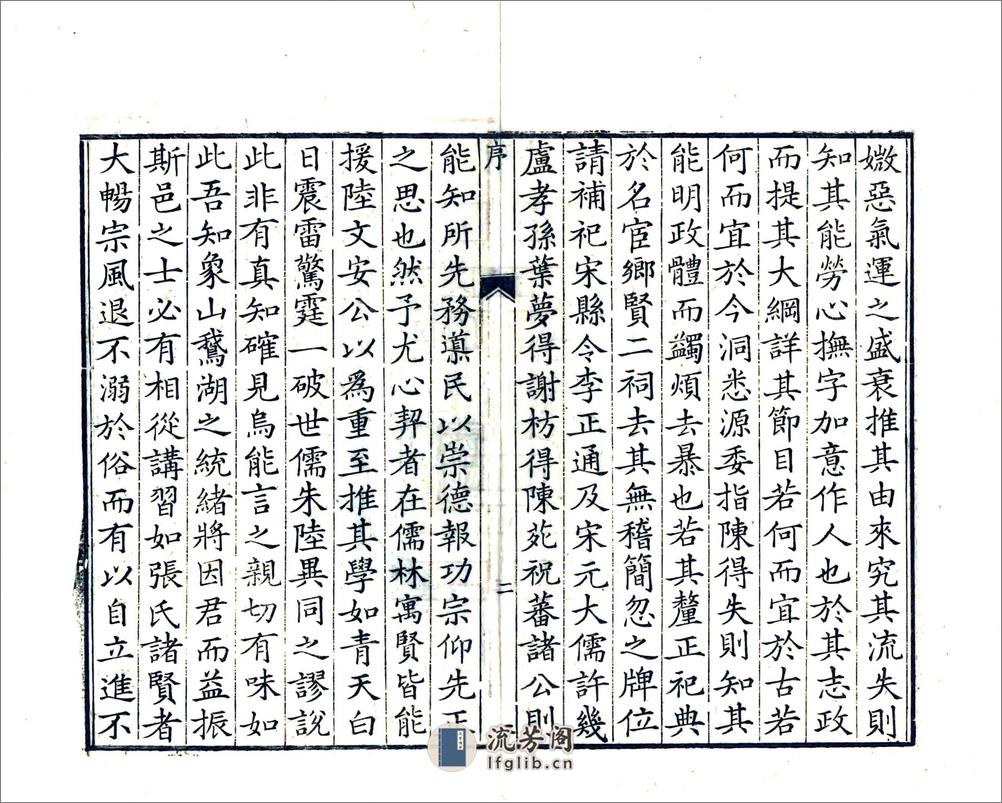 媺惡氣運之盛衰推其由來究其流失則
知其能勞心撫字加意作人也於其志政
而提其大綱詳其節目若何而宜於古若
何而宜於今洞悉源委指陳得失則知其
能明政體而蠲煩去暴也若其釐正祀典
於名宦鄉賢二祠去其無稽簡忽之牌位
請補祀宋縣令李正通及宋元大儒許幾
盧孝孫葉夢得謝枋得陳苑祝蕃諸公則
序
二
能知所先務導民以崇德報功宗仰先正
之思也然予尤心契者在儒林寓賢皆能
援陸文安公以為重至推其學如青天白
日震雷驚霆一破世儒朱陸異同之謬說
此非有真知確見烏能言之親切有味如
此吾知象山鵞湖之統緒將因君而益振
斯邑之士必有相從講習如張氏諸賢者
大暢宗風退不溺於俗而有以自立進不
流芳阁
lfglib.cn